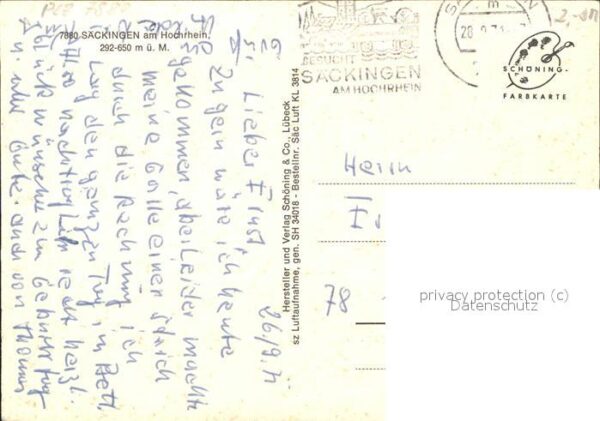 7880 SÄCKINGEN am Hochrhein,
292-650 m ü. M.
BESUCHT
SÄCKINGEN
AM HOCHRHEIN
2,-
SCHÖNING-
FARBKARTE
Hersteller und Verlag Schöning & Co., Lübeck
sz Luftaufnahme, gen. SH 34018 - Bestellnr. Säc Luft KL 3814
26/9.71
Lieber Ernst
Zu gern wäre ich heute
gekommen, aber leider machte
meine Galle einen Strich
durch die Rechnung ich
lag den ganzen Tag im Bett
Also nachträglich recht herzl.
Glückwünsche zum Geburtstag
u. alles Gute auch von Thomas
Herrn
78
privacy protection (c)
Datenschutz